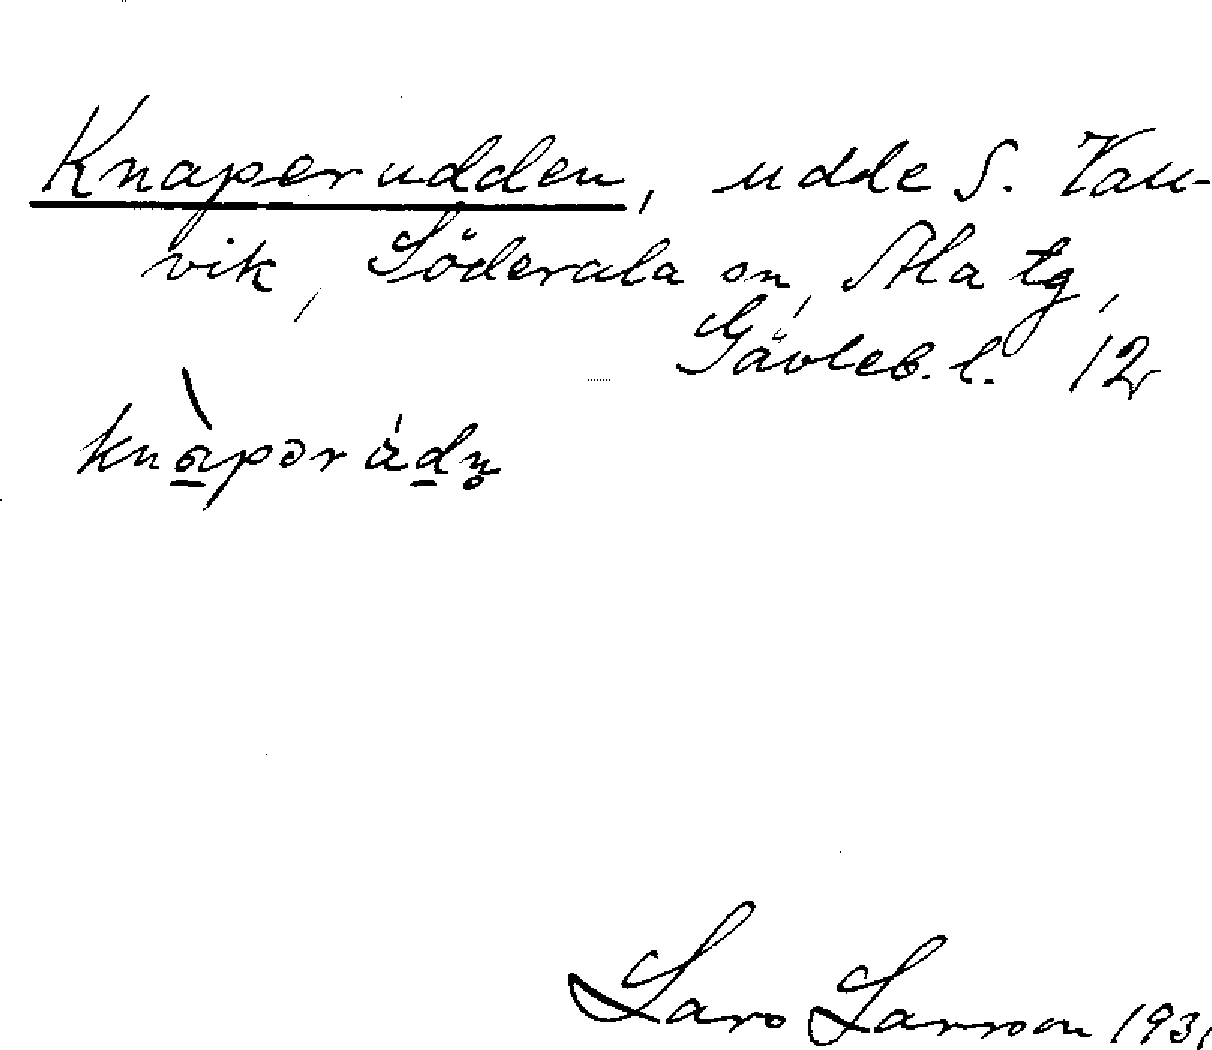 Knaperudden, udde S. Van-
vik, Söderala sn, Ala tg,
Gävleb. l. 12
knàpərádn̥
Lars Larsson 1931